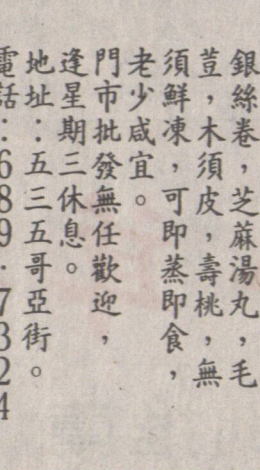 銀絲卷，芝蔴湯丸，毛
荳，木須皮，壽桃，無
須鮮凍，可即蒸即食，
老少咸宜。
門市批發無任歡迎，
逢星期三休息。
地址：五三五哥亞街。
電話：689·7324